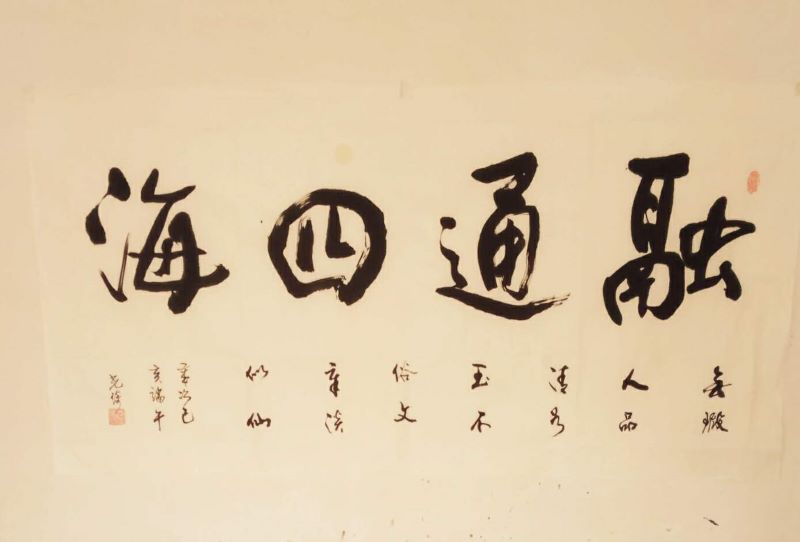 融通四海
無瑕
人品
清如
玉不
俗文
章淡
似仙
歲次己
亥端午